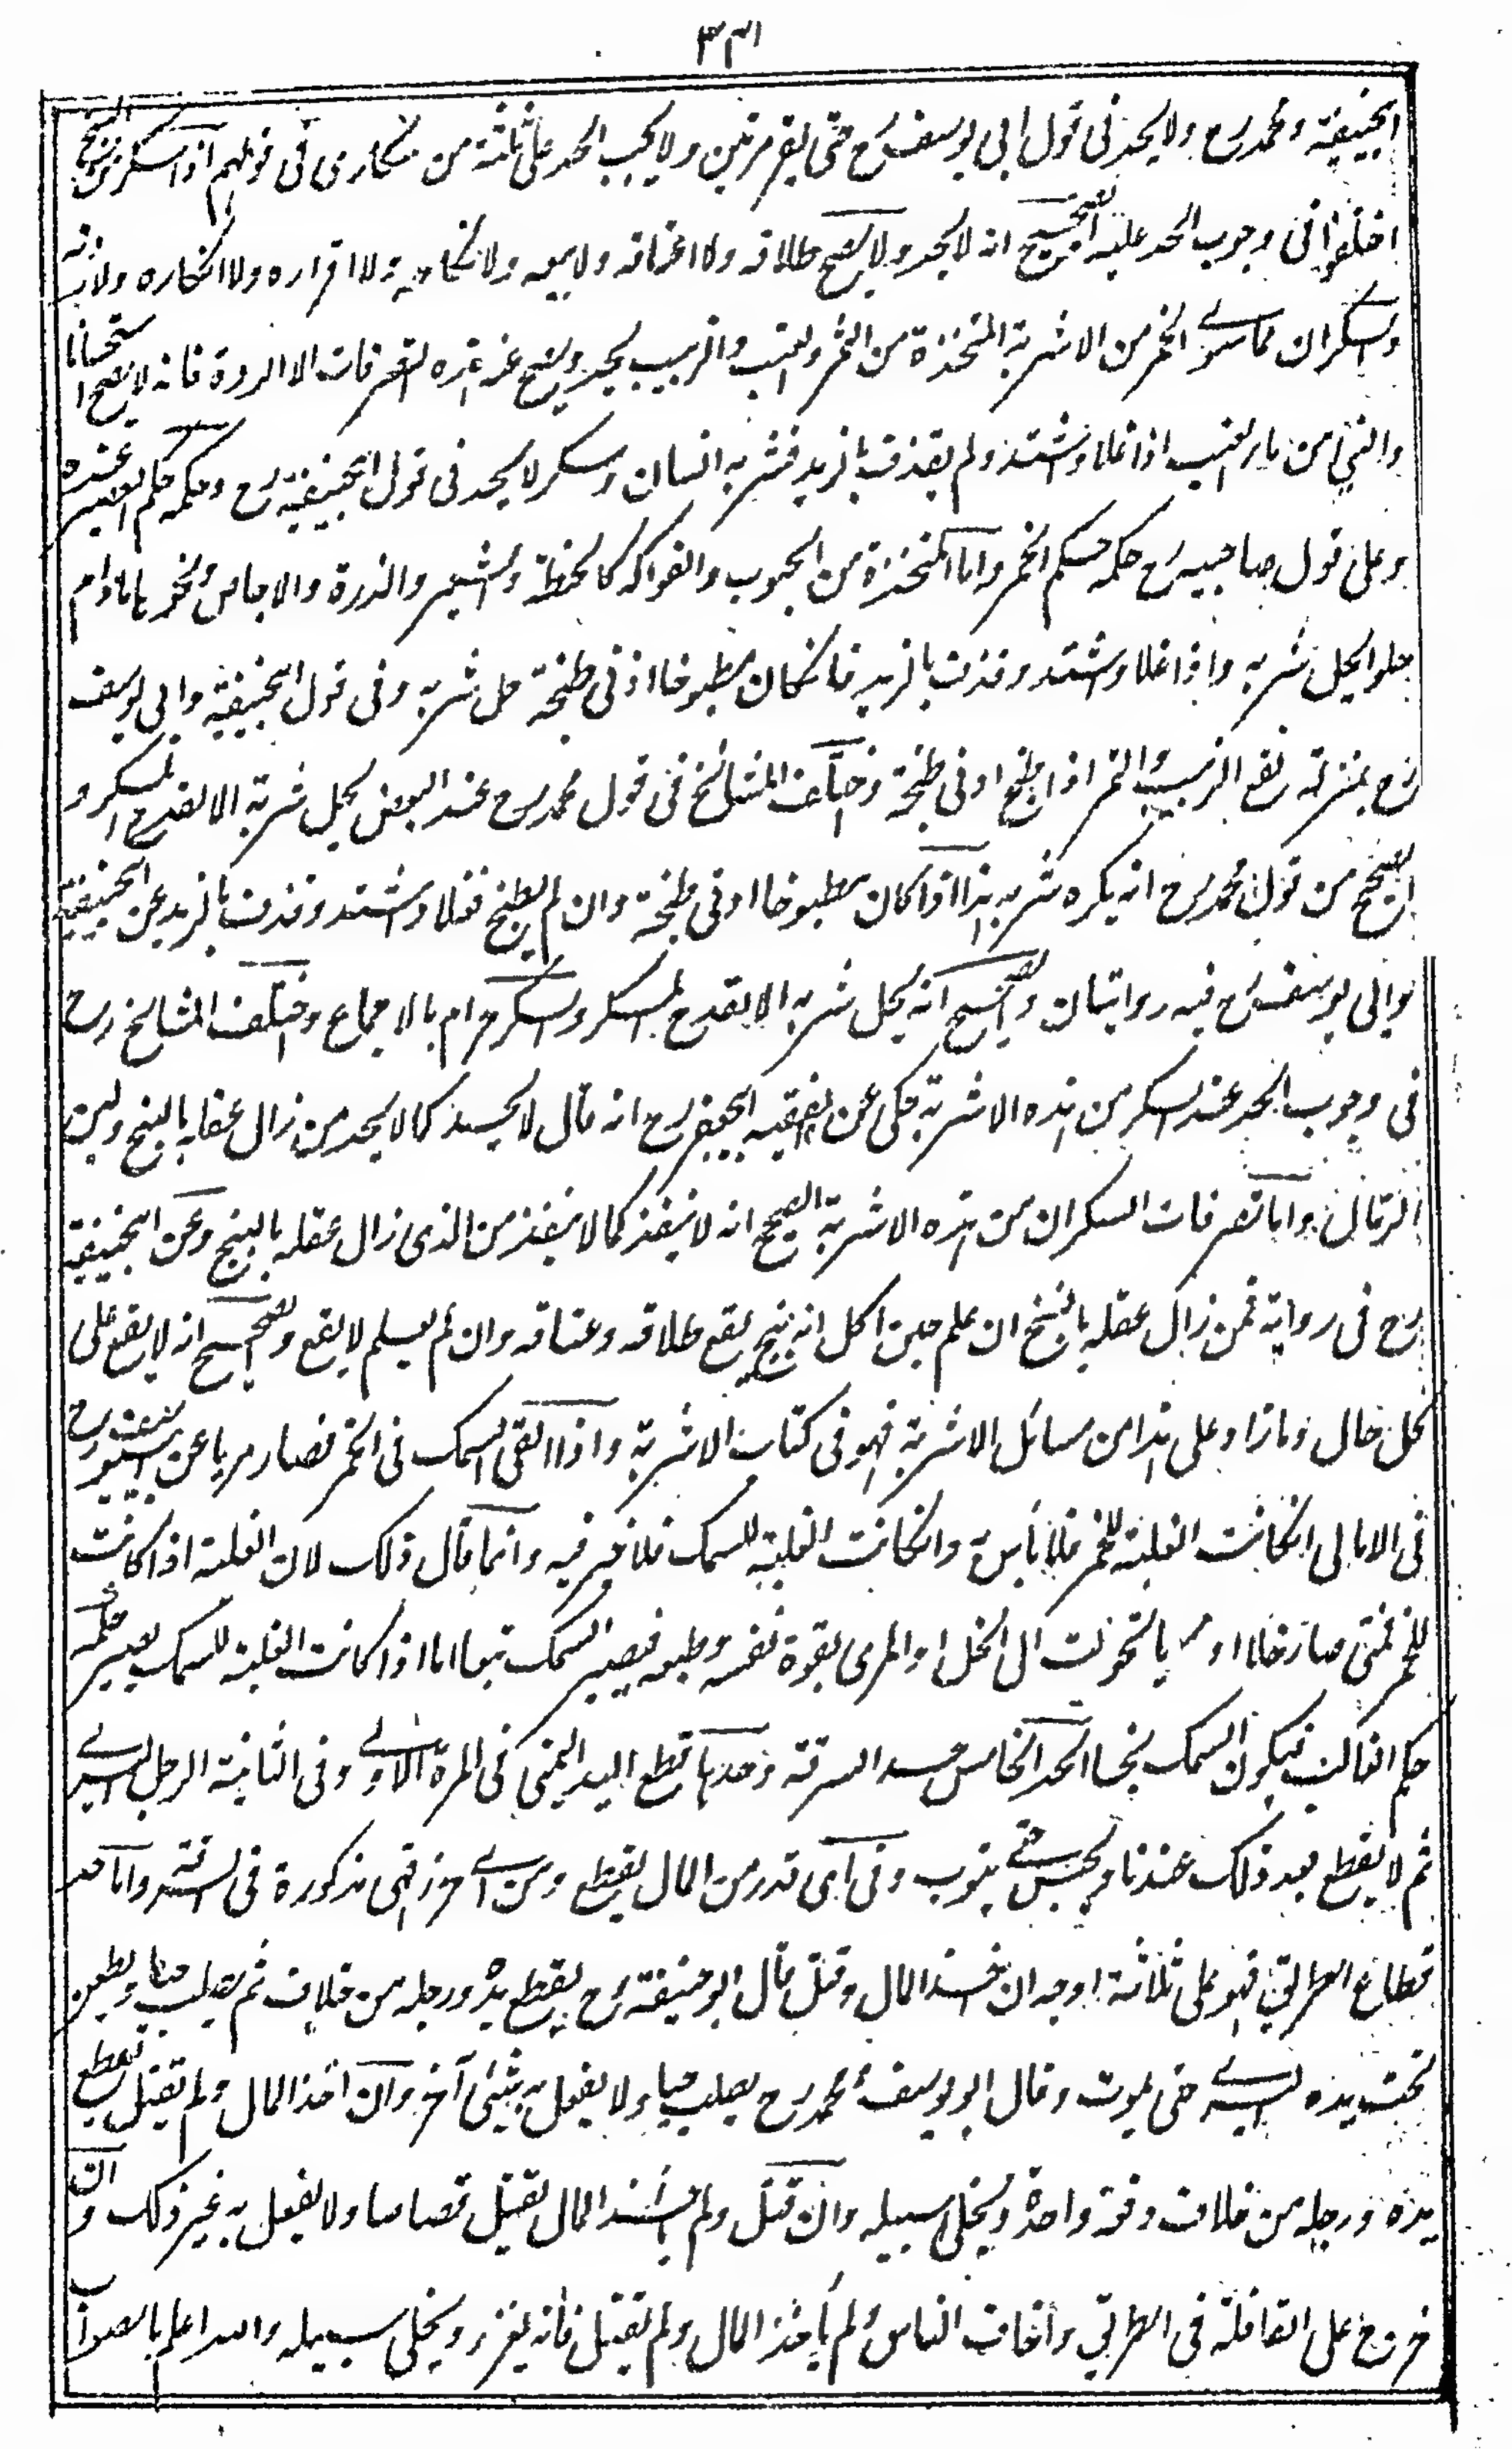 ٣٣١
ابيحنيفة ومحمد رح ولا يحد فى قول ابى يوسف رح حتى يقر مرتين ولا يجب الحد على ثلثة من سكارى فى قولهم اذا سكر من البنج
اختلفوا فى وجوب الحد عليه والصحيح انه لا يحد ولا يصح طلاقه ولا اعتاقه ولا بيعه ولا نكاحه ولا اقراره ولا انكاره ولا ردته
والسكران مما سوى الخمر من الاشربة المتخذة من التمر والعنب والزبيب يحد ويصح عند هذه التصرفات الا الردة فانه لا يصح استحسانا
والنئ من ماء العنب اذا غلا واشتد ولم يقذف بالزبد فشربه انسان وسكر لا يحد فى قول ابيحنيفة رح وحكمه حكم العصير عنده
وعلى قول صاحبيه رح حكمه حكم الخمر واما المتخذة من الحبوب والفواكه كالحنطة والشعير والذرة والاجاص ونحوها ما دام
حلوا يحل شربه واذا غلا واشتد وقذف بالزبد فانكان مطبوخا ادنى طبخة حل شربه وفى قول ابيحنيفة وابى يوسف
رح بمنزلة نقع الزبيب والتمر اذا طبخ ادنى طبخة واختلف المشائخ فى قول محمد رح عند البعض يحل شربه الا القدح المسكر و
الصحيح من قول محمد رح انه يكره شربه هذا اذا كان مطبوخا ادنى طبخة وان لم يطبخ فغلا واشتد وقذف بالزبد عن ابيحنيفة
وابى يوسف رح فيه روايتان والصحيح انه يحل شربه الا القدح المسكر والسكر حرام بالاجماع واختلف المشائخ رح
فى وجوب الحد عند السكر من هذه الاشربة حكى عن الفقيه ابيجعفر رح انه قال لا يحد كما لا يحد من زال عقله بالبنج ولبن
الرمال واما تصرفات السكران من هذه الاشربة الصحيح انه لا ينفذ كما لا ينفذ من الذى زال عقله بالبنج وعن ابيحنيفة
رح فى رواية فمن زال عقله بالبنج ان علم حين اكل انه بنج يقع طلاقه وعتاقه وان لم يعلم لا يقع والصحيح انه لا يقع على
كل حال وما زاد على هذا من مسائل الاشربة فهو فى كتاب الاشربة واذا القى السمك فى الخمر فصار مريا عن ابيوسف رح
فى الامالى انكانت الغلبة للخمر فلا بأس به وانكانت الغلبة للسمك فلا خير فيه وانما قال ذلك لان الغلبة اذا كانت
للخمر فمتى صار خلا او مريا تحولت الى الخل او المرى بقوة نفسه وطبعه فيصير السمك تبعا اما اذا كانت الغلبة للسمك يعتبر حكمه
حكم الغالب فيكون السمك نجسا الحد الخامس حد السرقة وحدها قطع اليد اليمنى فى المرة الاولى وفى الثانية الرجل اليسرى
ثم لا يقطع بعد ذلك عندنا ويحبس حتى يتوب وفى اى قدر من المال يقطع ومن اى حرز فهى مذكورة فى السرقة واما حد
قطاع الطريق فهو على ثلاثة اوجه ان اخذ المال وقتل قال ابو حنيفة رح يقطع يده ورجله من خلاف ثم يصلب حيا ويطعن
تحت يده اليسرى حتى يموت وقال ابو يوسف ومحمد رح يصلب حيا ولا يفعل به شئ آخر وان اخذ المال ولم يقتل يقطع
يده ورجله من خلاف دفعة واحدة ويخلى سبيله وان قتل ولم يأخذ المال يقتل قصاصا ولا يفعل به غير ذلك وان
خروج على القافلة فى الطريق واخاف الناس ولم يأخذ المال ولم يقتل فانه يعزر ويخلى سبيله والله اعلم بالصواب